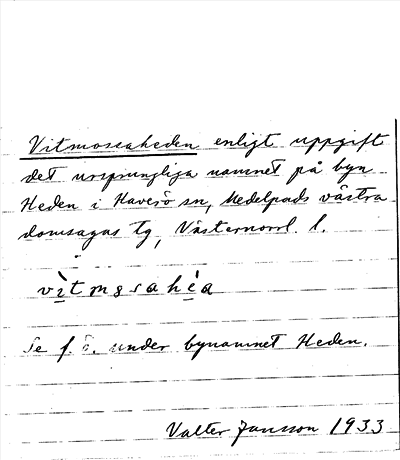 Vitmoseaheden enligt uppgift
det ursprungliga namnet på byn
Heden i Haverö sn, Medelpads västra
domsagas tg, Västernorrl. l.
Se f. ö. under bynamnet Heden.
Valter Jansson 1933